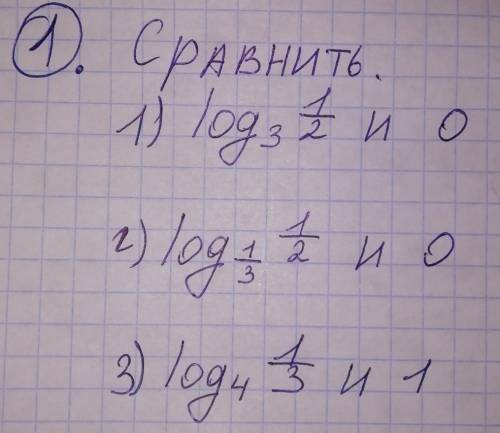 1. Сравнить.
1) log₃ 1/2 и 0
2) log₁/₃ 1/2 и 0
3) log₄ 1/3 и 1